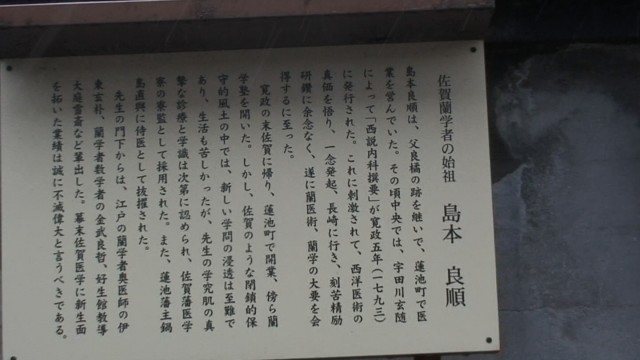 佐賀蘭学者の始祖 島本 良順
島本良順は、父良橘の跡を継いで、蓮池町で医
業を営んでいた。その頃中央では、宇田川玄随
によって「西説内科撰要」が寛政五年(一七九三)
に発行された。これに刺激されて、西洋医術の
真価を悟り、一念発起、長崎に行き、刻苦精励
研鑽に余念なく、遂に蘭医術、蘭学の大要を会
得するに至った。
寛政の末佐賀に帰り、蓮池町で開業、傍ら蘭
学塾を開いた。しかし、佐賀のような閉鎖的保
守的風土の中では、新しい学問の浸透は至難で
あり、生活も苦しかったが、先生の学究肌の真
摯な診療と学識は次第に認められ、佐賀藩医学
寮の寮監として採用された。また、蓮池藩主鍋
島直與に侍医として抜擢された。
先生の門下からは、江戸の蘭学者奥医師の伊
東玄朴、蘭学者数学者の金武良哲、好生館教導
大庭雪斎など輩出した。幕末佐賀医学に新生面
を拓いた業績は誠に不滅偉大と言うべきである。